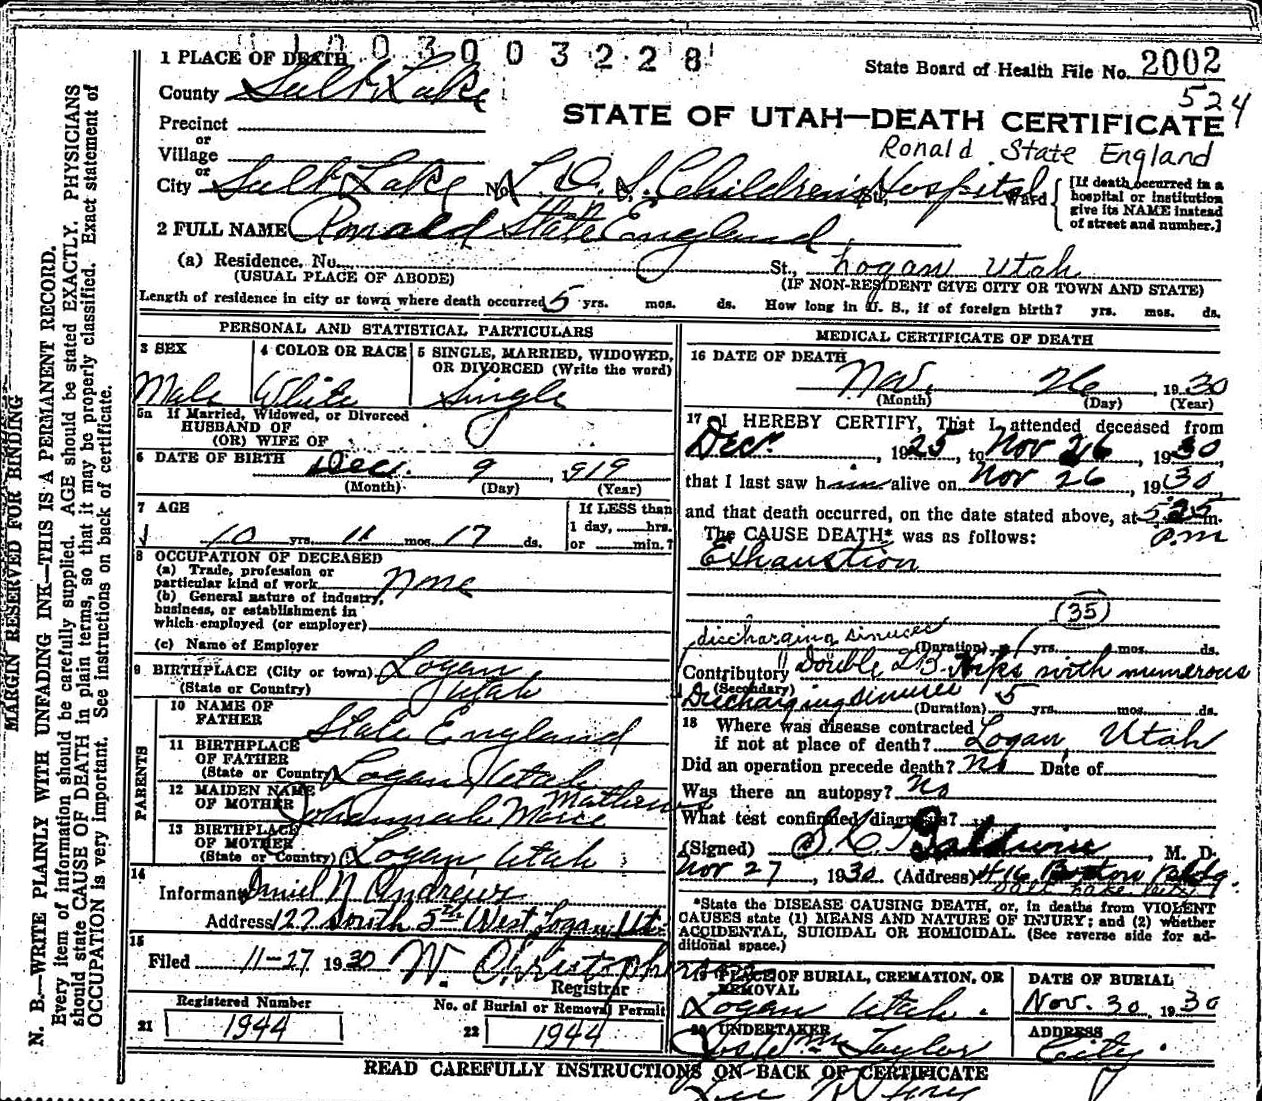 1003003228
1 PLACE OF DEATH
State Board of Health File No. 2002
County Salt Lake
524
STATE OF UTAH—DEATH CERTIFICATE
Precinct
or
Ronald State England
Village
or
City Salt Lake No. L. D. S. Children's Hospital St., Ward
[If death occurred in a hospital or institution give its NAME instead of street and number.]
2 FULL NAME Ronald State England
(a) Residence, No. St., Logan Utah
(USUAL PLACE OF ABODE) (IF NON-RESIDENT GIVE CITY OR TOWN AND STATE)
Length of residence in city or town where death occurred 5 yrs. mos. ds. How long in U. S., if of foreign birth? yrs. mos. ds.
PERSONAL AND STATISTICAL PARTICULARS
3 SEX 4 COLOR OR RACE 5 SINGLE, MARRIED, WIDOWED, OR DIVORCED (Write the word)
Male White Single
5a If Married, Widowed, or Divorced
HUSBAND OF
(OR) WIFE OF
6 DATE OF BIRTH Dec. 9 1919
(Month) (Day) (Year)
7 AGE If LESS than
1 day, hrs.
10 yrs. 11 mos. 17 ds. or min.?
8 OCCUPATION OF DECEASED
(a) Trade, profession or
particular kind of work None
(b) General nature of industry,
business, or establishment in
which employed (or employer)
(c) Name of Employer
9 BIRTHPLACE (City or town) Logan
(State or Country) Utah
PARENTS
10 NAME OF
FATHER State England
11 BIRTHPLACE
OF FATHER
(State or Country) Logan Utah
12 MAIDEN NAME
OF MOTHER Johannah Marie Mathews
13 BIRTHPLACE
OF MOTHER
(State or Country) Logan Utah
14
Informant Daniel N Andrews
Address 127 South 5th West Logan, Ut.
15
Filed 11-27 1930 W. Christopherson
Registrar
Registered Number No. of Burial or Removal Permit
21 1944 22 1944
MEDICAL CERTIFICATE OF DEATH
16 DATE OF DEATH
Nov. 26 1930
(Month) (Day) (Year)
17 I HEREBY CERTIFY, That I attended deceased from
Dec. , 1925, to Nov 26 , 1930
that I last saw him alive on Nov 26 , 1930
and that death occurred, on the date stated above, at 5:25 m.
P.m
The CAUSE DEATH* was as follows:
Exhaustion
(35)
discharging sinuses (Duration) 1 yrs. mos. ds.
Contributory Double T.B. Hips with numerous
(Secondary)
Discharging sinuses (Duration) 5 yrs. mos. ds.
18 Where was disease contracted
if not at place of death? Logan, Utah
Did an operation precede death? No Date of
Was there an autopsy? No
What test confirmed diagnosis?
(Signed) S. C. Baldwin , M. D.
Nov 27 , 1930 (Address) 416 Boston Bldg.
Salt Lake City
*State the DISEASE CAUSING DEATH, or, in deaths from VIOLENT
CAUSES state (1) MEANS AND NATURE OF INJURY; and (2) whether
ACCIDENTAL, SUICIDAL OR HOMICIDAL. (See reverse side for ad-
ditional space.)
19 PLACE OF BURIAL, CREMATION, OR REMOVAL DATE OF BURIAL
Logan Utah. Nov. 30, 1930
20 UNDERTAKER ADDRESS
Jos Wm Taylor City
READ CAREFULLY INSTRUCTIONS ON BACK OF CERTIFICATE
MARGIN RESERVED FOR BINDING
N. B.—WRITE PLAINLY WITH UNFADING INK—THIS IS A PERMANENT RECORD.
Every item of information should be carefully supplied. AGE should be stated EXACTLY. PHYSICIANS
should state CAUSE OF DEATH in plain terms, so that it may be properly classified. Exact statement of
OCCUPATION is very important. See instructions on back of certificate.